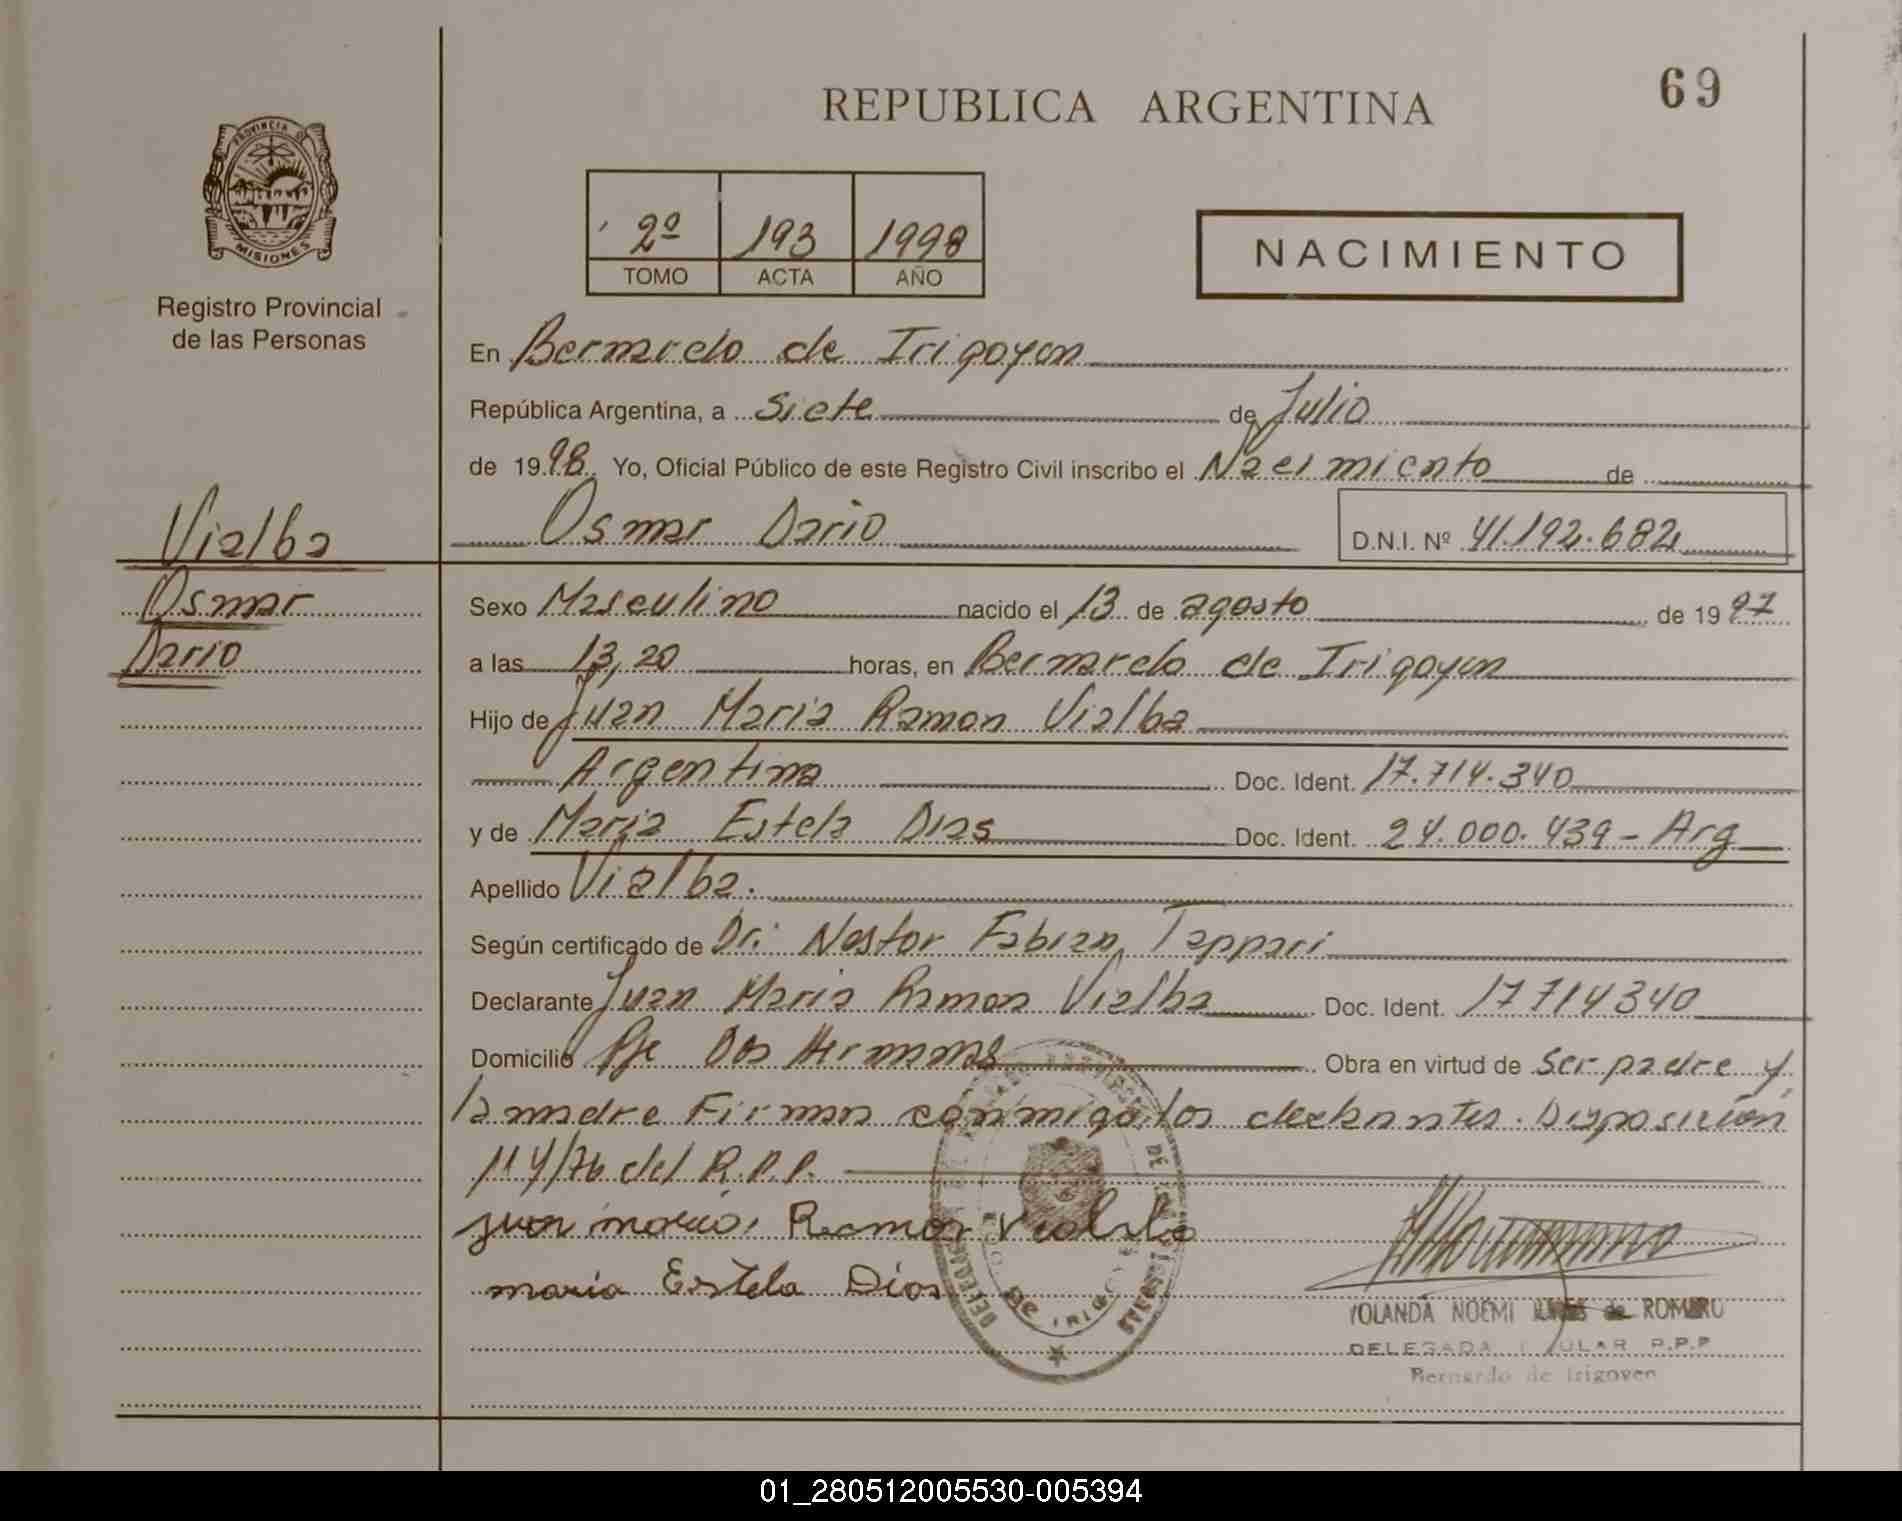 69
REPUBLICA ARGENTINA
PROVINCIA D
MISIONES
Registro Provincial
de las Personas
2º 193 1998
TOMO ACTA AÑO
NACIMIENTO
En Bernardo de Irigoyen
República Argentina, a siete de Julio
de 1998 Yo, Oficial Público de este Registro Civil inscribo el Nacimiento de
Vialba
Osmar Dario D.N.I. Nº 41.192.682
Osmar
Sexo Masculino nacido el 13 de agosto de 1997
Dario
a las 13,20 horas, en Bernardo de Irigoyen
Hijo de Juan Maria Ramon Vialba
Argentina Doc. Ident. 17.714.340
y de Maria Estela Dias Doc. Ident. 24.000.439 - Arg
Apellido Vialba.
Según certificado de Dr. Nestor Fabian Tappari
Declarante Juan Maria Ramon Vialba Doc. Ident. 17714340
Domicilio Pje Dos Hermanas Obra en virtud de ser padre y
la madre Firman conmigo los Disposición
114/76 del R.P.P.
juan maria Ramon Vialba
maria Estela Dias
YOLANDA NOEMI de ROMERO
DELEGADA TITULAR R.P.P
Bernardo de Irigoyen
01_280512005530-005394